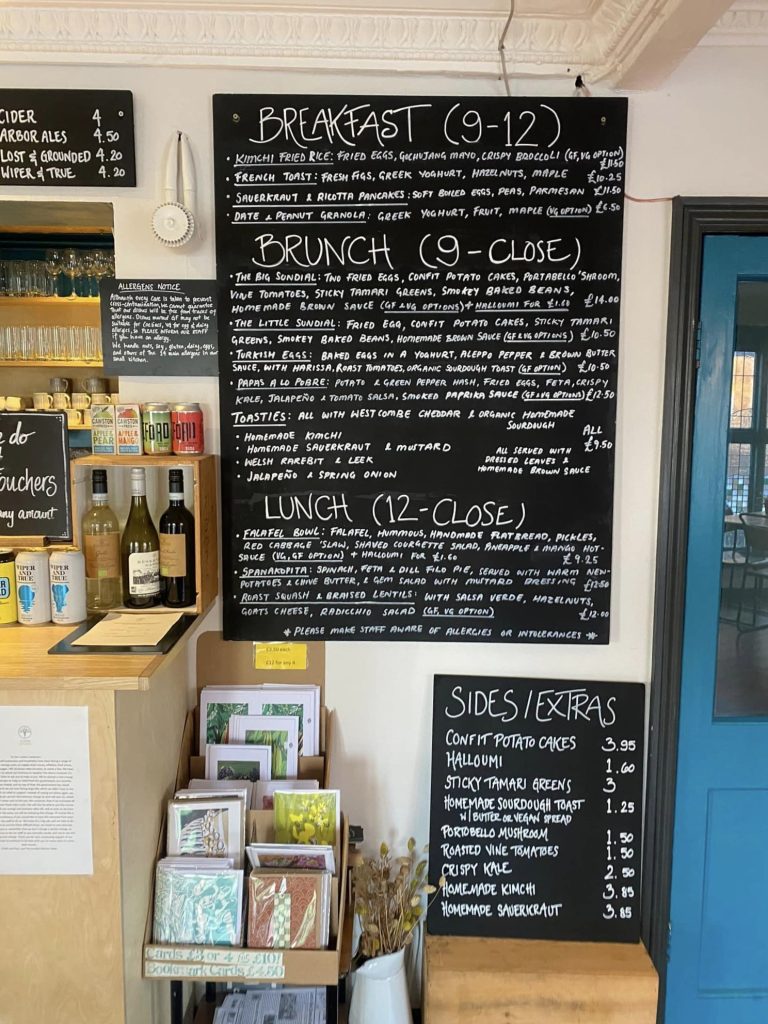 CIDER 4
ARBOR ALES 4.50
LOST & GROUNDED 4.20
WIPER & TRUE 4.20
BREAKFAST (9-12)
• KIMCHI FRIED RICE: FRIED EGGS, GOCHUJANG MAYO, CRISPY BROCCOLI (GF, VG OPTION) £11.50
• FRENCH TOAST: FRESH FIGS, GREEK YOGHURT, HAZELNUTS, MAPLE £10.25
• SAUERKRAUT & RICOTTA PANCAKES: SOFT BOILED EGGS, PEAS, PARMESAN £11.50
• DATE & PEANUT GRANOLA: GREEK YOGHURT, FRUIT, MAPLE (VG OPTION) £6.50
BRUNCH (9-CLOSE)
• THE BIG SUNDIAL: TWO FRIED EGGS, CONFIT POTATO CAKES, PORTABELLO 'SHROOM,
VINE TOMATOES, STICKY TAMARI GREENS, SMOKEY BAKED BEANS,
HOMEMADE BROWN SAUCE (GF & VG OPTIONS) + HALLOUMI FOR £1.60 £14.00
• THE LITTLE SUNDIAL: FRIED EGG, CONFIT POTATO CAKES, STICKY TAMARI
GREENS, SMOKEY BAKED BEANS, HOMEMADE BROWN SAUCE (GF & VG OPTIONS) £10.50
• TURKISH EGGS: BAKED EGGS IN A YOGHURT, ALEPPO PEPPER & BROWN BUTTER
SAUCE, WITH HARISSA, ROAST TOMATOES, ORGANIC SOURDOUGH TOAST (GF OPTION) £10.50
• PAPAS A LO POBRE: POTATO & GREEN PEPPER HASH, FRIED EGGS, FETA, CRISPY
KALE, JALAPEÑO & TOMATO SALSA, SMOKED PAPRIKA SAUCE (GF & VG OPTIONS) £12.50
TOASTIES: ALL WITH WESTCOMBE CHEDDAR & ORGANIC HOMEMADE
SOURDOUGH
• HOMEMADE KIMCHI
• HOMEMADE SAUERKRAUT & MUSTARD
• WELSH RAREBIT & LEEK
• JALAPEÑO & SPRING ONION
ALL
£9.50
ALL SERVED WITH
DRESSED LEAVES &
HOMEMADE BROWN SAUCE
LUNCH (12-CLOSE)
• FALAFEL BOWL: FALAFEL, HUMMOUS, HANDMADE FLATBREAD, PICKLES,
RED CABBAGE 'SLAW, SHAVED COURGETTE SALAD, PINEAPPLE & MANGO HOT-
SAUCE (VG, GF OPTION) + HALLOUMI FOR £1.60 £9.25
• SPANAKOPITA: SPINACH, FETA & DILL FILO PIE, SERVED WITH WARM NEW-
POTATOES & CHIVE BUTTER, & GEM SALAD WITH MUSTARD DRESSING £12.50
• ROAST SQUASH & BRAISED LENTILS: WITH SALSA VERDE, HAZELNUTS,
GOATS CHEESE, RADICCHIO SALAD (GF, VG OPTION) £12.00
* PLEASE MAKE STAFF AWARE OF ALLERGIES OR INTOLERANCES *
ALLERGENS NOTICE
Although every care is taken to prevent
cross-contamination, we cannot guarantee
that our dishes will be free from traces of
allergens. Dishes marked GF may not be
suitable for coeliacs, VG for egg & dairy
allergies, so PLEASE INFORM OUR STAFF
if you have an allergy.
We handle nuts, soy, gluten, dairy, eggs,
and others of the 14 main allergens in our
small kitchen.
e do
ouchers
any amount
CAWSTON
PRESS
APPLE &
PEAR
CAWSTON
PRESS
APPLE &
MANGO
WIPER
AND
TRUE
WIPER
AND
TRUE
£3.50 each
£12 for any 4
Cards £3 or 4 for £10!
Bookmark Cards £4.50
SIDES / EXTRAS
CONFIT POTATO CAKES 3.95
HALLOUMI 1.60
STICKY TAMARI GREENS 3
HOMEMADE SOURDOUGH TOAST 1.25
W/ BUTTER OR VEGAN SPREAD
PORTOBELLO MUSHROOM 1.50
ROASTED VINE TOMATOES 1.50
CRISPY KALE 2.50
HOMEMADE KIMCHI 3.85
HOMEMADE SAUERKRAUT 3.85